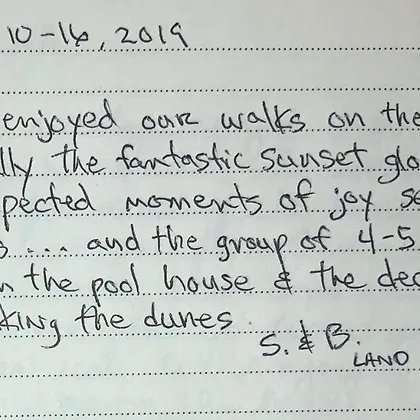 10-16, 2019
enjoyed our walks on the
lly the fantastic sunset glo
pected moments of joy se
... and the group of 4-5
the pool house & the dec
king the dunes.
S. & B.
LAND